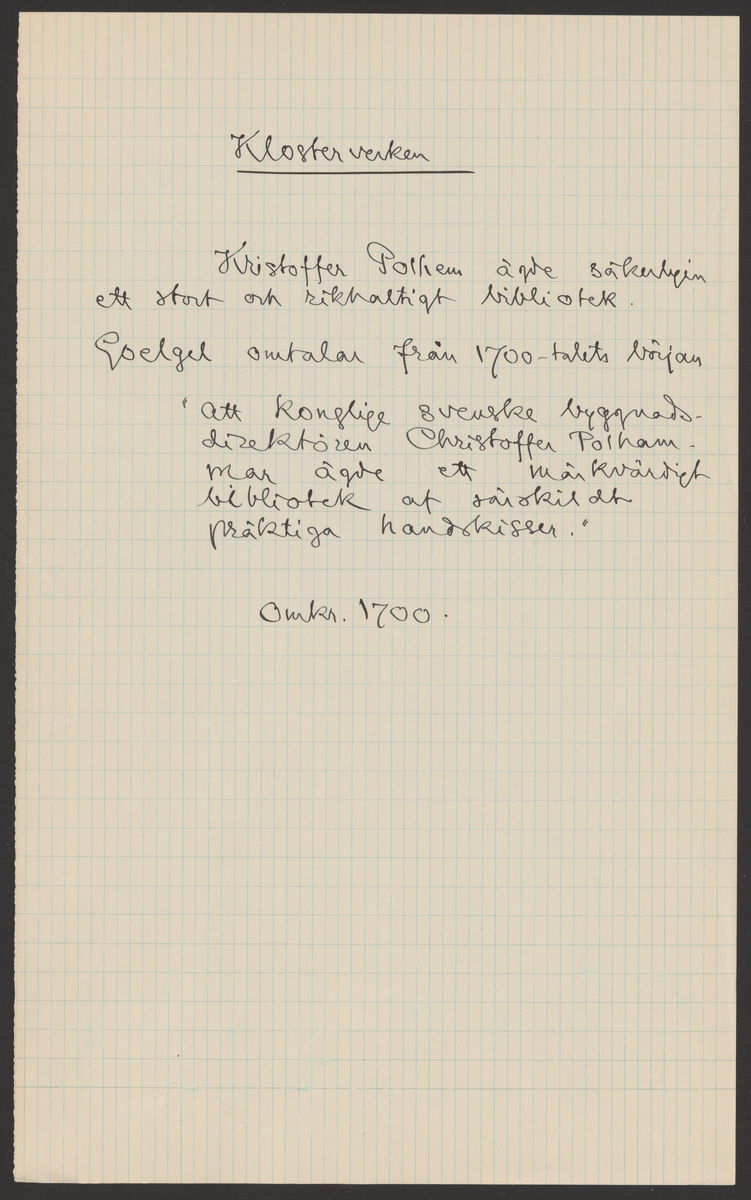 Klosterverken
Kristoffer Polhem ägde säkerligen
ett stort och rikhaltigt bibliotek.
Goelgel omtalar från 1700-talets början
"att konglige svenske byggnads-
direktören Christoffer Polham-
mar ägde ett märkvärdigt
bibliotek af särskildt
präktiga handskisser."
Omkr. 1700.